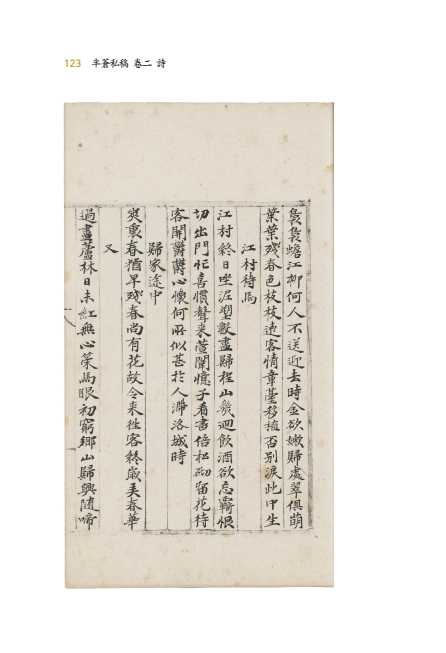 123 半蒼私稿 卷二 詩
裊裊蟾江柳何人不送迎去時金欲嫩歸處翠俱萌
葉葉殘春色枝枝遠客情章臺移植否別淚此中生
江村待馬
江村終日坐泥塑歎盡歸程山幾迴飲酒欲忘羈恨
切出門忙喜慣聲來萱闌憶子看書倦松砌留花待
客開爵爵心懷何所似甚於人滯洛城時
歸家途中
爽重春酒早殘春尚有花故令來徃客終歲美春華
又
過盡蘆林日未紅無心策馬眼初窮鄉山歸興隨啼